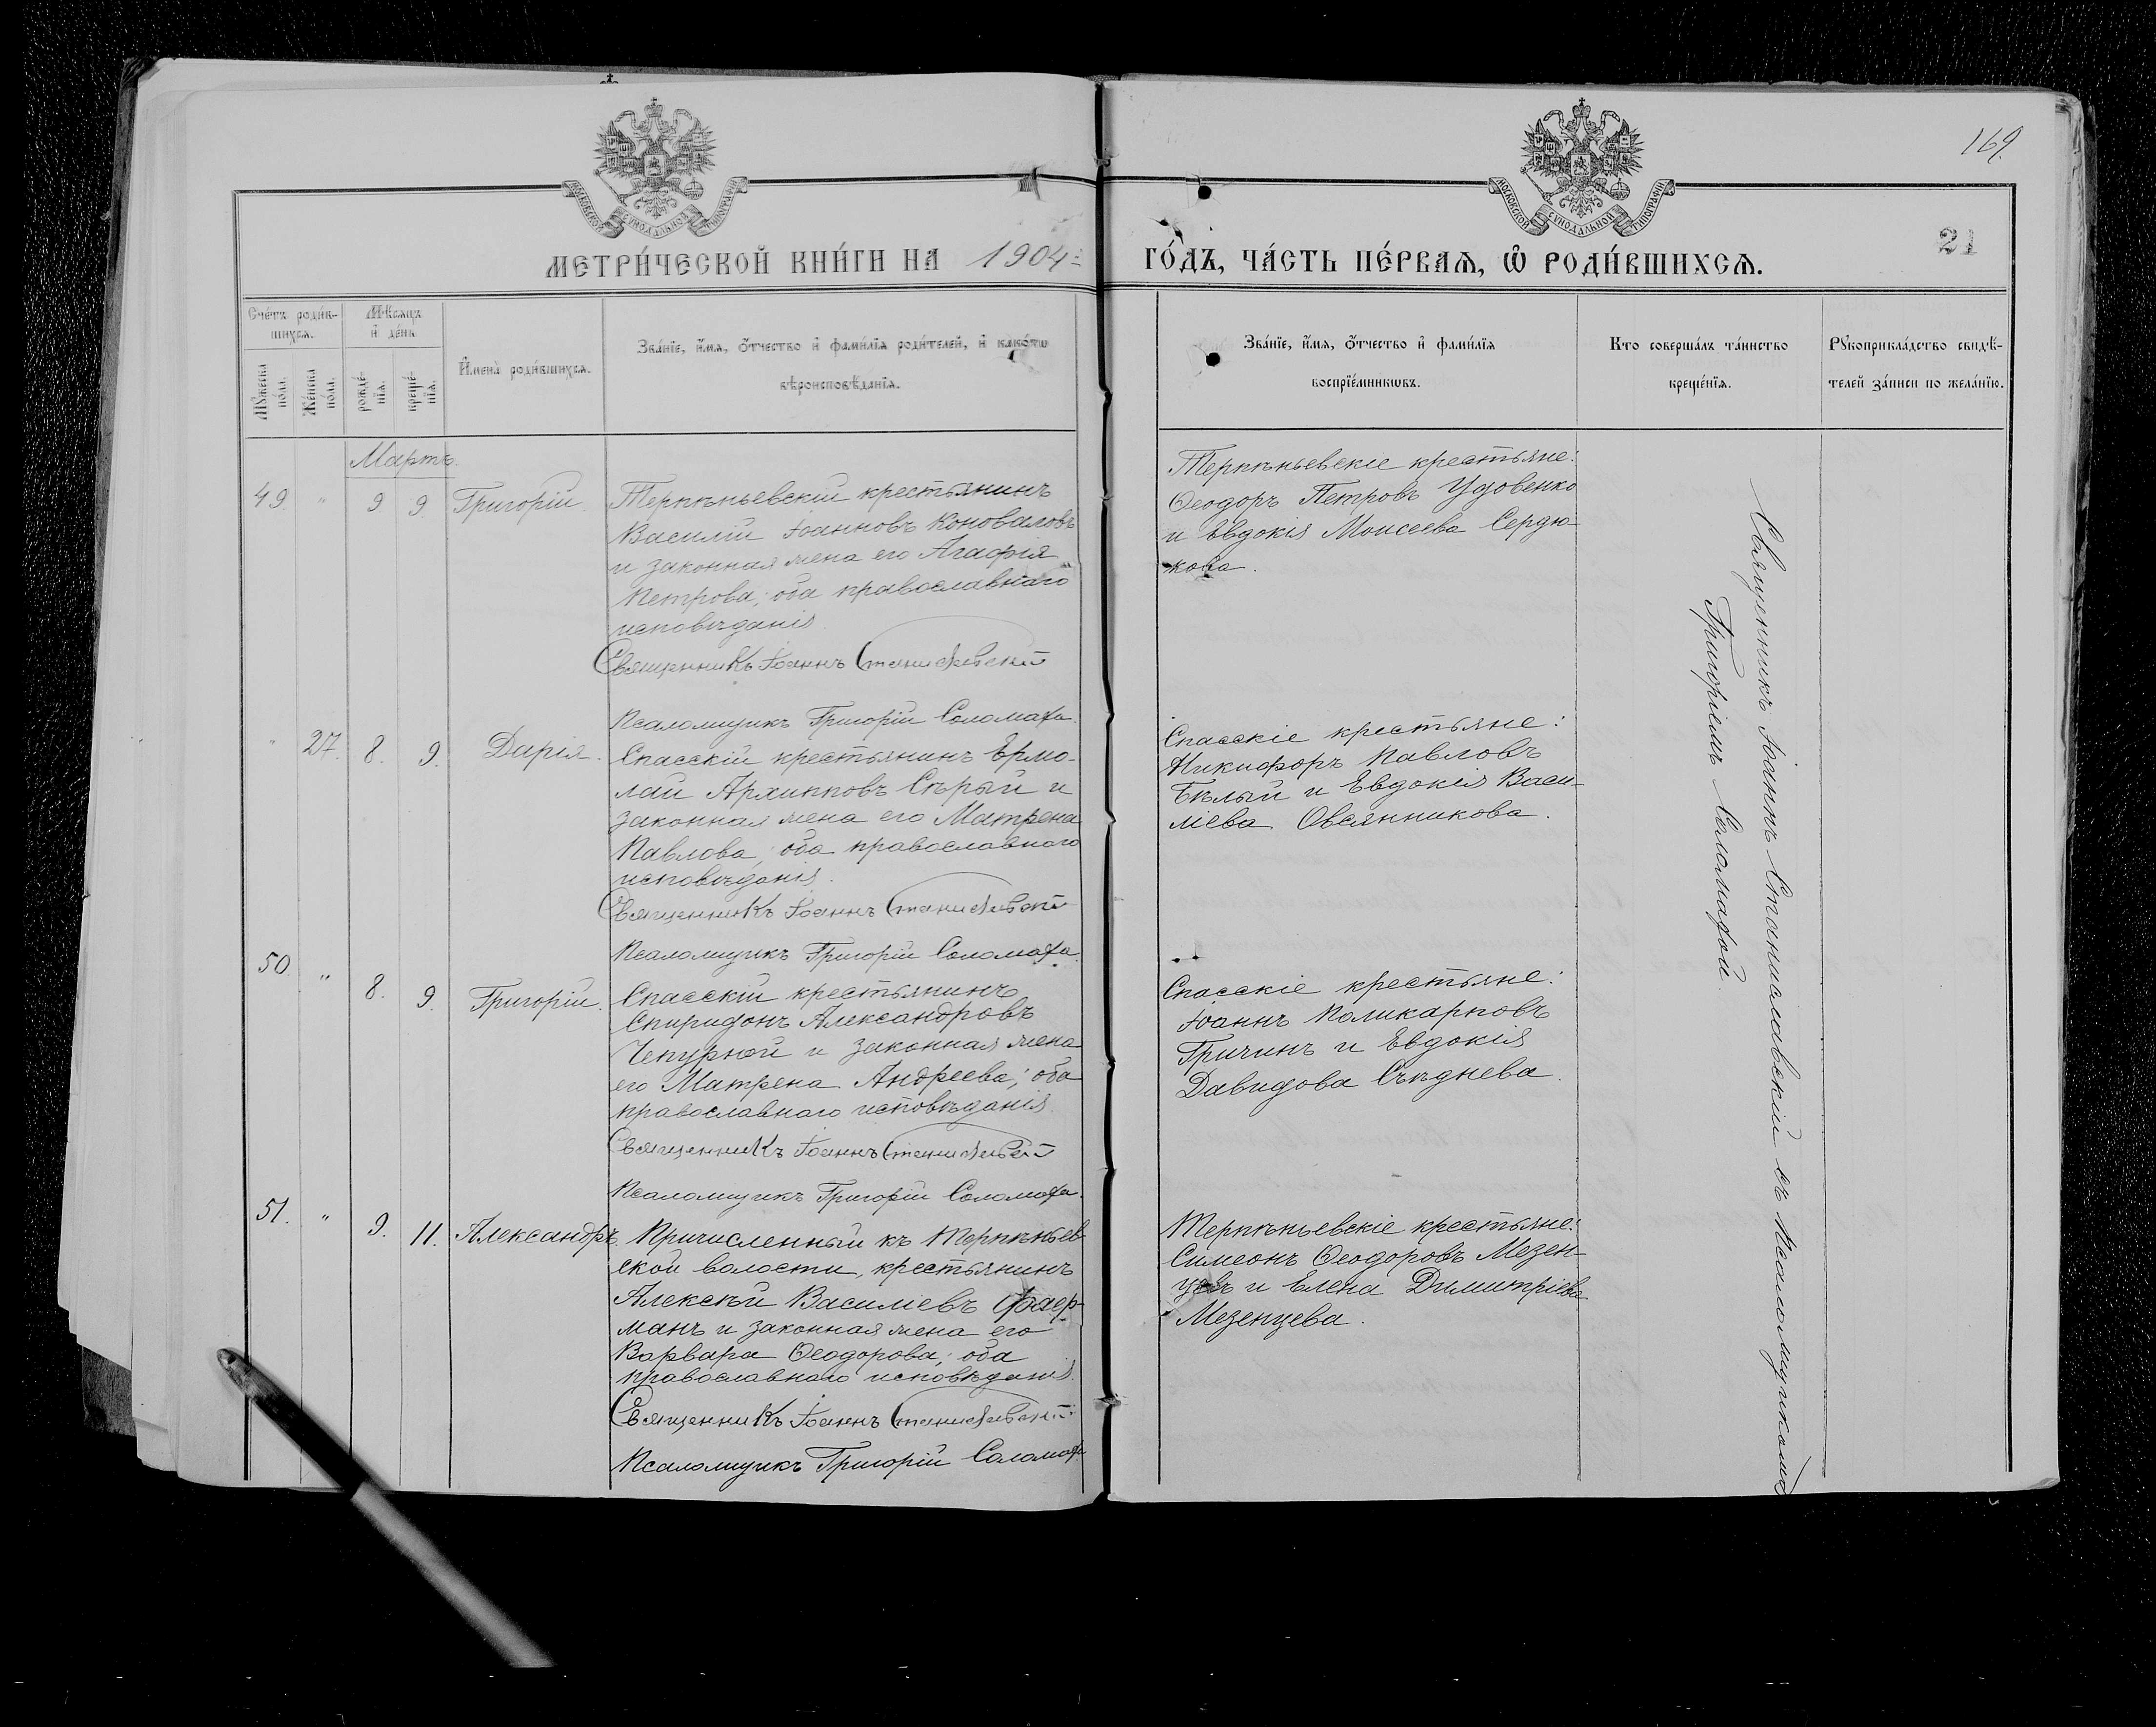 169.
21
МОСКОВСКОЙ СУНОДАЛЬНОЙ ТИПОГРАФІИ
МОСКОВСКОЙ СУНОДАЛЬНОЙ ТИПОГРАФІИ
МЕТРИ́ЧЕСКОЙ КНИ́ГИ НА 1904 ГО́ДЪ, ЧА́СТЬ ПЕ́РВАѦ, Ѿ РОДИ́ВШИХСѦ.
Сче́тъ роди́в-
шихся.
Мѣ́сяцъ
и де́нь
Му́жеска по́ла.
Же́нска по́ла.
рожде́-
нїя.
креще́-
нїя.
И́мена роди́вшихся.
Зва́нїе, и́мя, о́тчество и фами́лїя роди́телей, и како́гѡ
вѣроисповѣ́данїя.
Зва́нїе, и́мя, о́тчество и фами́лїя
воспрїе́мникѡвъ.
Кто соверша́лъ та́инство
креще́нїя.
Рукоприкла́дство свидѣ́-
телей за́писи по жела́нїю.
Мартъ.
49 " 9 9 Григорій.
Терпѣньевскій крестьянинъ
Василій Іоанновъ Коноваловъ
и законная жена его Агафія
Петрова; оба православнаго
исповѣданія.
Священникъ Іоаннъ Станиславскій
Псаломщикъ Григорій Соломаха.
Терпѣньевскіе крестьяне:
Ѳеодоръ Петровъ Удовенко
и Евдокія Моисеева Сердю-
кова.
" 27. 8. 9. Дарія.
Спасскій крестьянинъ Ермо-
лай Архипповъ Сѣрый и
законная жена его Матрена
Павлова; оба православнаго
исповѣданія.
Священникъ Іоаннъ Станиславскій
Псаломщикъ Григорій Соломаха.
Спасскіе крестьяне:
Никифоръ Павловъ
Бѣлый и Евдокія Васи-
ліева Овсянникова.
50 " 8. 9. Григорій.
Спасскій крестьянинъ
Спиридонъ Александровъ
Чепурной и законная жена
его Матрена Андреева; оба
православнаго исповѣданія.
Священникъ Іоаннъ Станиславскій
Псаломщикъ Григорій Соломаха.
Спасскіе крестьяне:
Іоаннъ Поликарповъ
Гричинъ и Евдокія
Давидова Съѣднева.
51. " 9. 11. Александръ.
Причисленный къ Терпѣньев-
ской волости, крестьянинъ
Алексѣй Василіевъ Фаер-
манъ и законная жена его
Варвара Ѳеодорова; оба
православнаго исповѣданія.
Священникъ Іоаннъ Станиславскій
Псаломщикъ Григорій Соломаха
Терпѣньевскіе крестьяне:
Симеонъ Ѳеодоровъ Мезен-
цевъ и Елена Димитріева
Мезенцева.
Священникъ Іоаннъ Станиславскій съ Псаломщикомъ
Григоріемъ Соломахой.